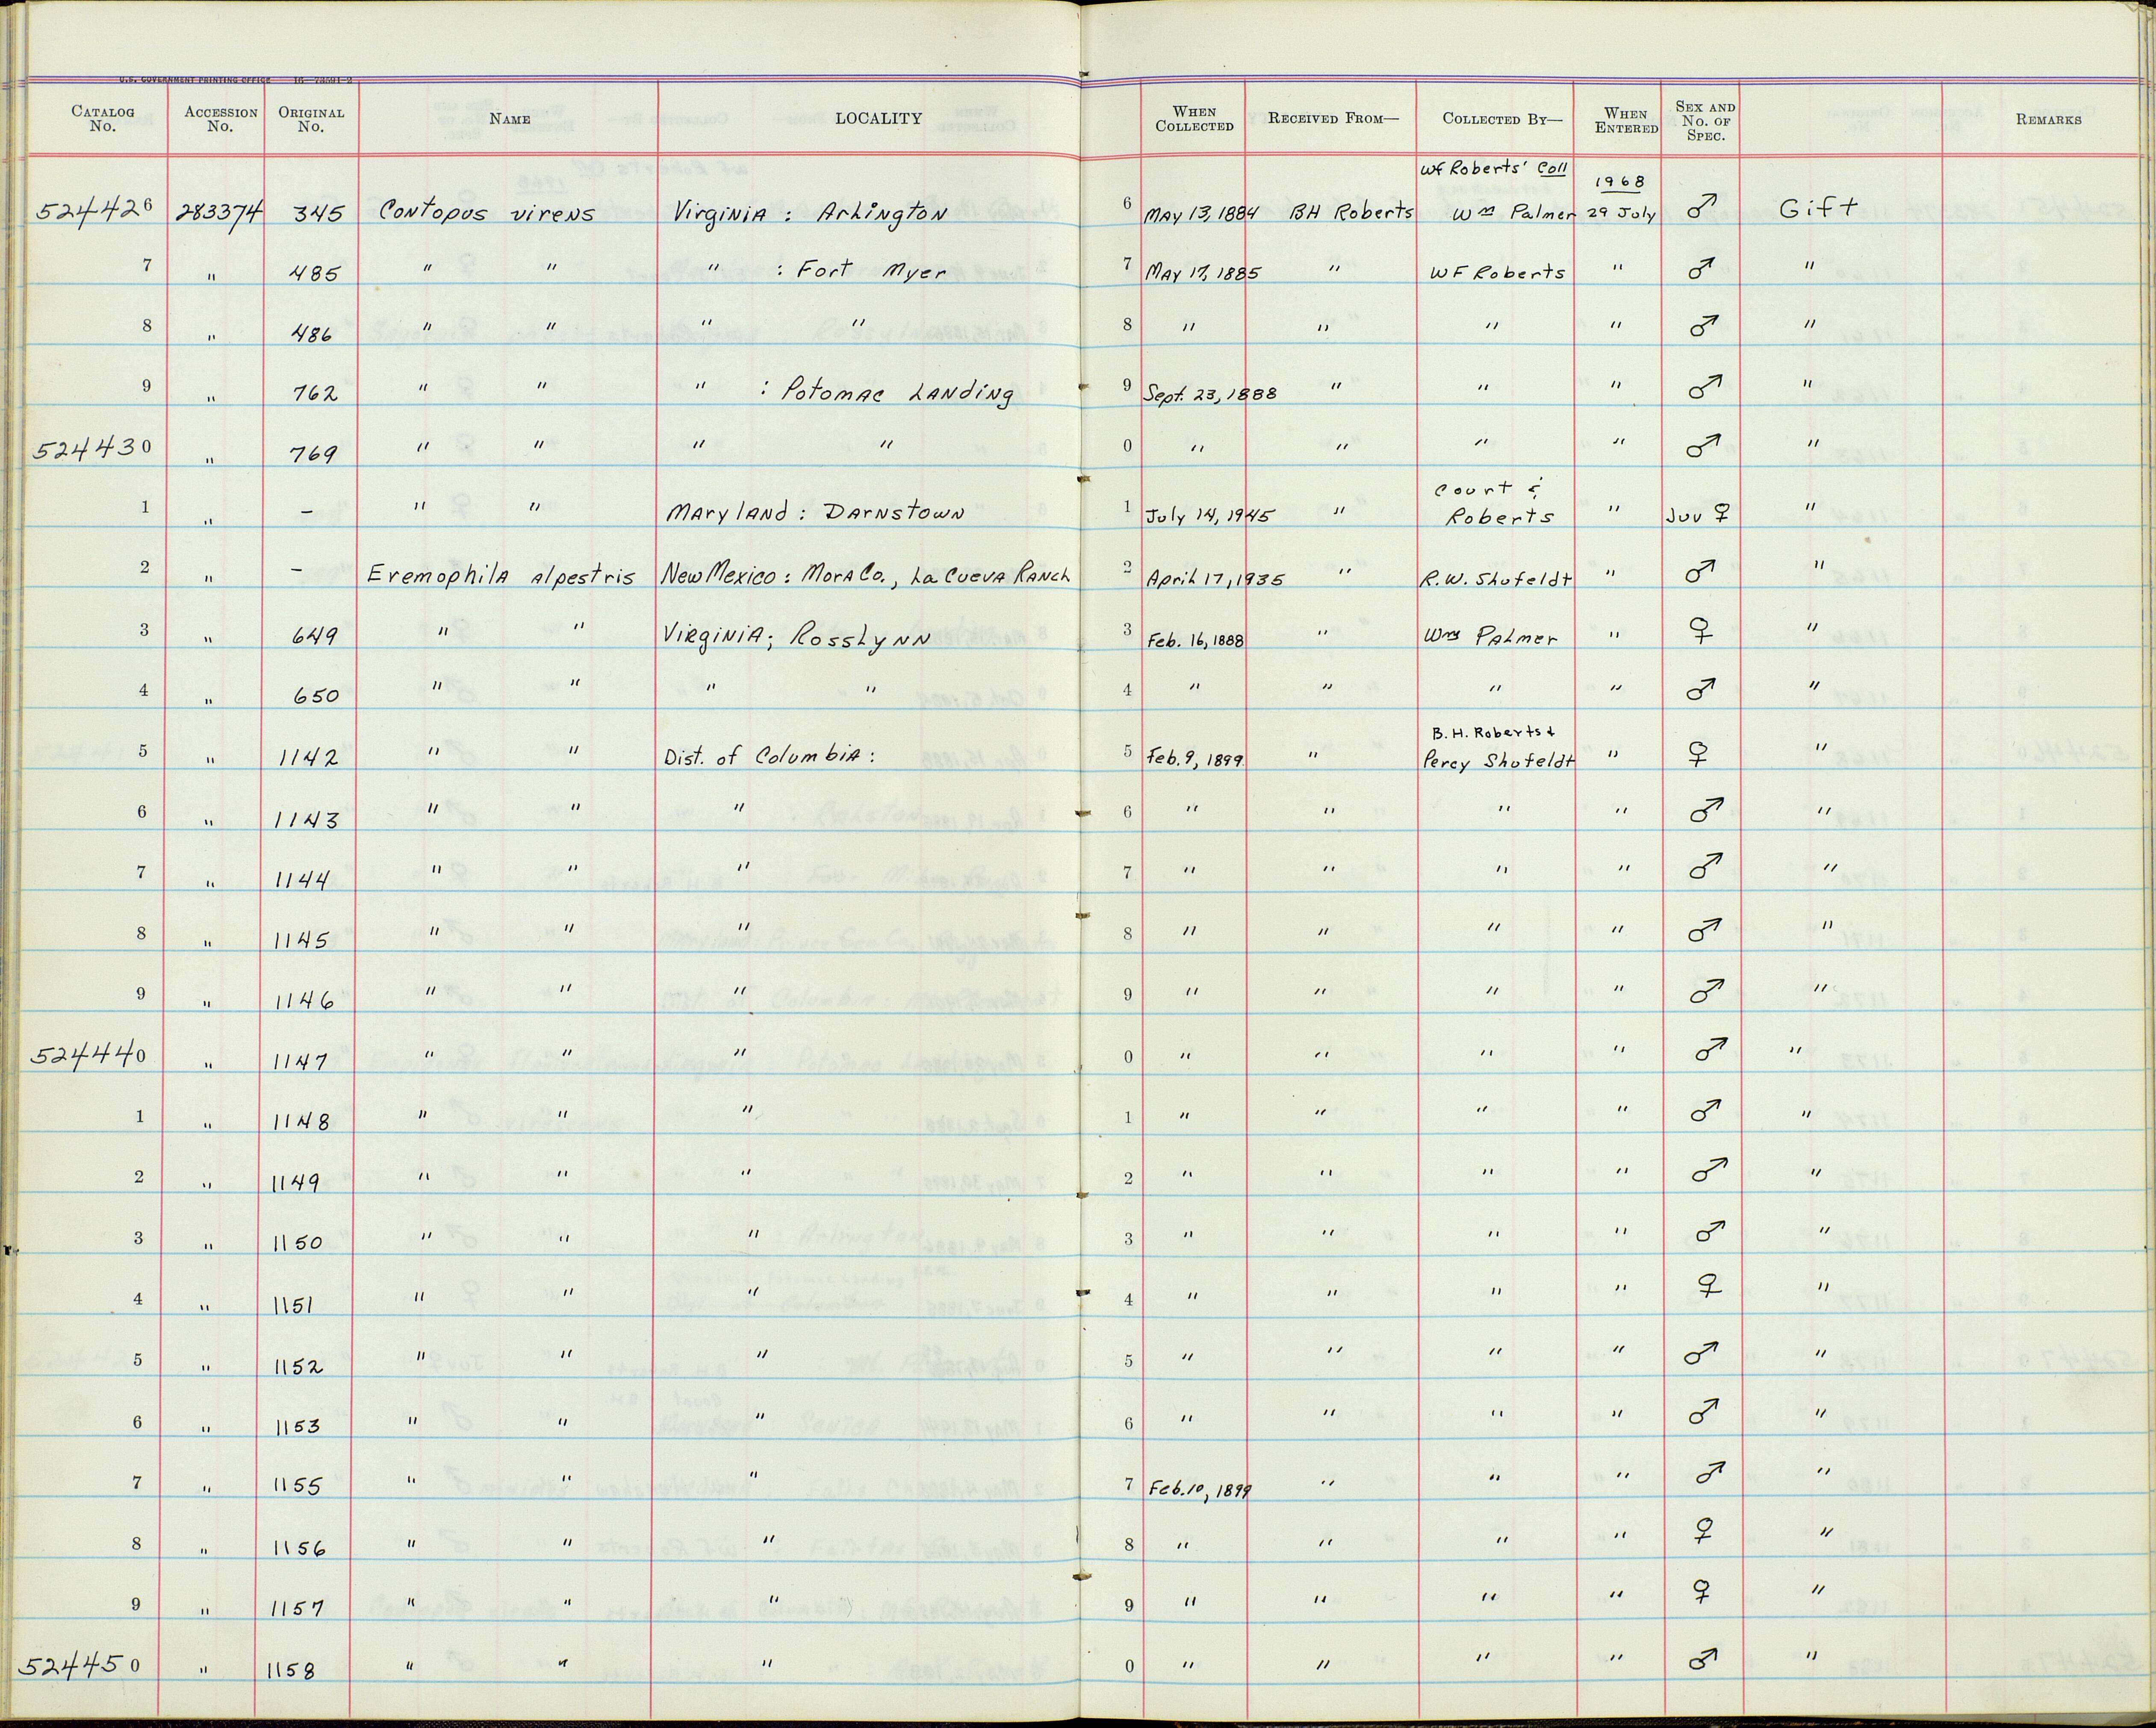 U.S. GOVERNMENT PRINTING OFFICE 16—73591-2
CATALOG No. ACCESSION No. ORIGINAL No. NAME LOCALITY WHEN COLLECTED RECEIVED FROM— COLLECTED BY— WHEN ENTERED SEX AND No. OF SPEC. REMARKS
WF Roberts' Coll 1968
524426 283374 345 Contopus virens Virginia : Arlington 6 May 13, 1884 BH Roberts Wm Palmer 29 July ♂ Gift
7 " 485 " " " : Fort Myer 7 May 17, 1885 " WF Roberts " ♂ "
8 " 486 " " " " 8 " " " " ♂ "
9 " 762 " " " : Potomac Landing 9 Sept. 23, 1888 " " " ♂ "
524430 " 769 " " " " 0 " " " " ♂ "
Court &
1 " – " " Maryland : Darnstown 1 July 14, 1945 " Roberts " Juv ♀ "
2 " – Eremophila alpestris New Mexico : Mora Co., La Cueva Ranch 2 April 17, 1935 " R.W. Shufeldt " ♂ "
3 " 649 " " Virginia; Rosslynn 3 Feb. 16, 1888 " Wm Palmer " ♀ "
4 " 650 " " " " 4 " " " " ♂ "
B.H. Roberts &
5 " 1142 " " Dist. of Columbia : 5 Feb. 9, 1899 " Percy Shufeldt " ♀ "
6 " 1143 " " " 6 " " " " ♂ "
7 " 1144 " " " 7 " " " " ♂ "
8 " 1145 " " " 8 " " " " ♂ "
9 " 1146 " " " 9 " " " " ♂ "
524440 " 1147 " " " 0 " " " " ♂ "
1 " 1148 " " " 1 " " " " ♂ "
2 " 1149 " " " 2 " " " " ♂ "
3 " 1150 " " " 3 " " " " ♂ "
4 " 1151 " " " 4 " " " " ♀ "
5 " 1152 " " " 5 " " " " ♂ "
6 " 1153 " " " 6 " " " " ♂ "
7 " 1155 " " " 7 Feb. 10, 1899 " " " ♂ "
8 " 1156 " " " 8 " " " " ♀ "
9 " 1157 " " " 9 " " " " ♀ "
524450 " 1158 " " " 0 " " " " ♂ "